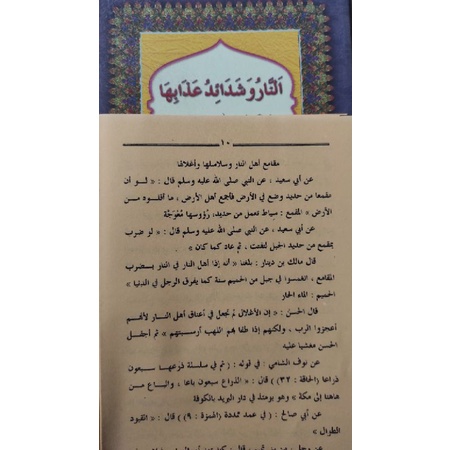 النَّارُ وَشَدَائِدُ عَذَابِهَا
١٠
مقامع أهل النار وسلاسلها وأغلالها
عن أبي سعيد ، عن النبي صلى الله عليه وسلم قال : « لو أن
مقمعا من حديد وضع في الأرض فاجمع أهل الأرض ، ما أقلوه من
الأرض » المقمع : سياط تعمل من حديد، رؤوسها مُعْوَجَّة
عن أبي سعيد ، عن النبي صلى الله عليه وسلم قال : « لو ضرب
بمقمع من حديد الجبل لتفتت ، ثم عاد كما كان »
قال مالك بن دينار : بلغنا « أنه إذا أهل النار في النار بستضرب
المقامع ، انغمسوا في جبل من الحميم سنة كما يغرق الرجل في الدنيا »
الحميم : الماء الحار
قال الحسن : « إن الأغلال لم تجعل في أعناق أهل النار لأنهم
أعجزوا الرب ، ولكنهم إذا طفا بهم اللهب أرسبتهم » ثم أجفل
الحسن مغشيا عليه
عن نوف الشامي : في قوله : ( ثم في سلسلة ذرعها سبعون
ذراعا (الحاقة : ٣٢) ) قال : « الذراع سبعون باعا ، والباع من
هاهنا إلى مكة » وهو يومئذ في دار البريد بالكوفة
عن أبي صالح : ( في عمد ممددة (الهمزة : ٩) ) قال : « القيود
الطوال »